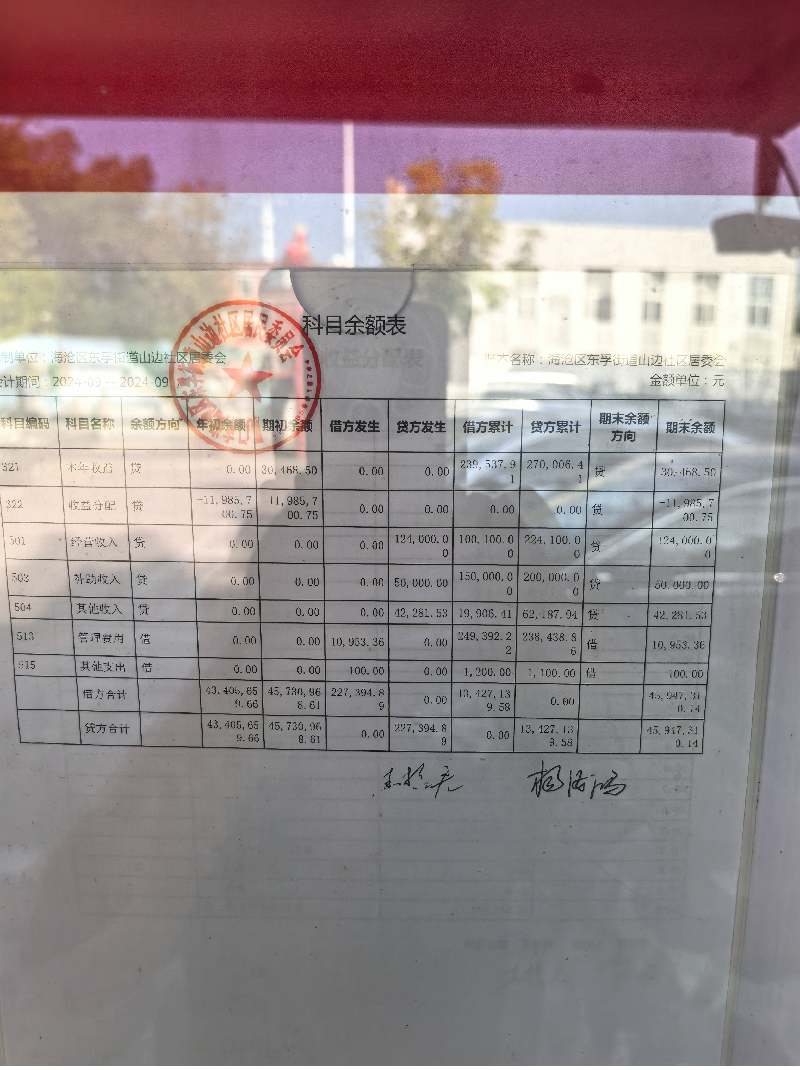 科目余额表
制单位：海沧区东孚街道山边社区居委会 账本名称：海沧区东孚街道山边社区居委会
会计期间：2024-09 -- 2024-09 金额单位：元
科目编码 科目名称 余额方向 年初余额 期初余额 借方发生 贷方发生 借方累计 贷方累计 期末余额方向 期末余额
321 本年收益 贷 0.00 30,468.50 0.00 0.00 239,537.91 270,006.41 贷 30,468.50
322 收益分配 贷 -11,985,700.75 11,985,700.75 0.00 0.00 0.00 0.00 贷 -11,985,700.75
501 经营收入 贷 0.00 0.00 0.00 124,000.00 100,100.00 224,100.00 贷 124,000.00
503 补助收入 贷 0.00 0.00 0.00 50,000.00 150,000.00 200,000.00 贷 50,000.00
504 其他收入 贷 0.00 0.00 0.00 42,281.53 19,906.41 62,187.94 贷 42,281.53
513 管理费用 借 0.00 0.00 10,953.36 0.00 249,392.22 238,438.86 借 10,953.36
515 其他支出 借 0.00 0.00 100.00 0.00 1,200.00 1,100.00 借 100.00
借方合计 43,405,659.66 45,730,968.61 227,394.89 0.00 13,427,139.58 0.00 45,947,310.14
贷方合计 43,405,659.66 45,730,968.61 0.00 227,394.89 0.00 13,427,139.58 45,947,310.14